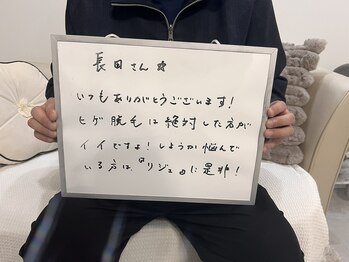 長田さん☆
いつもありがとうございます！
ヒゲ脱毛は絶対した方が
イイですよ！しようか悩んで
いる方は『リジュ』に是非！